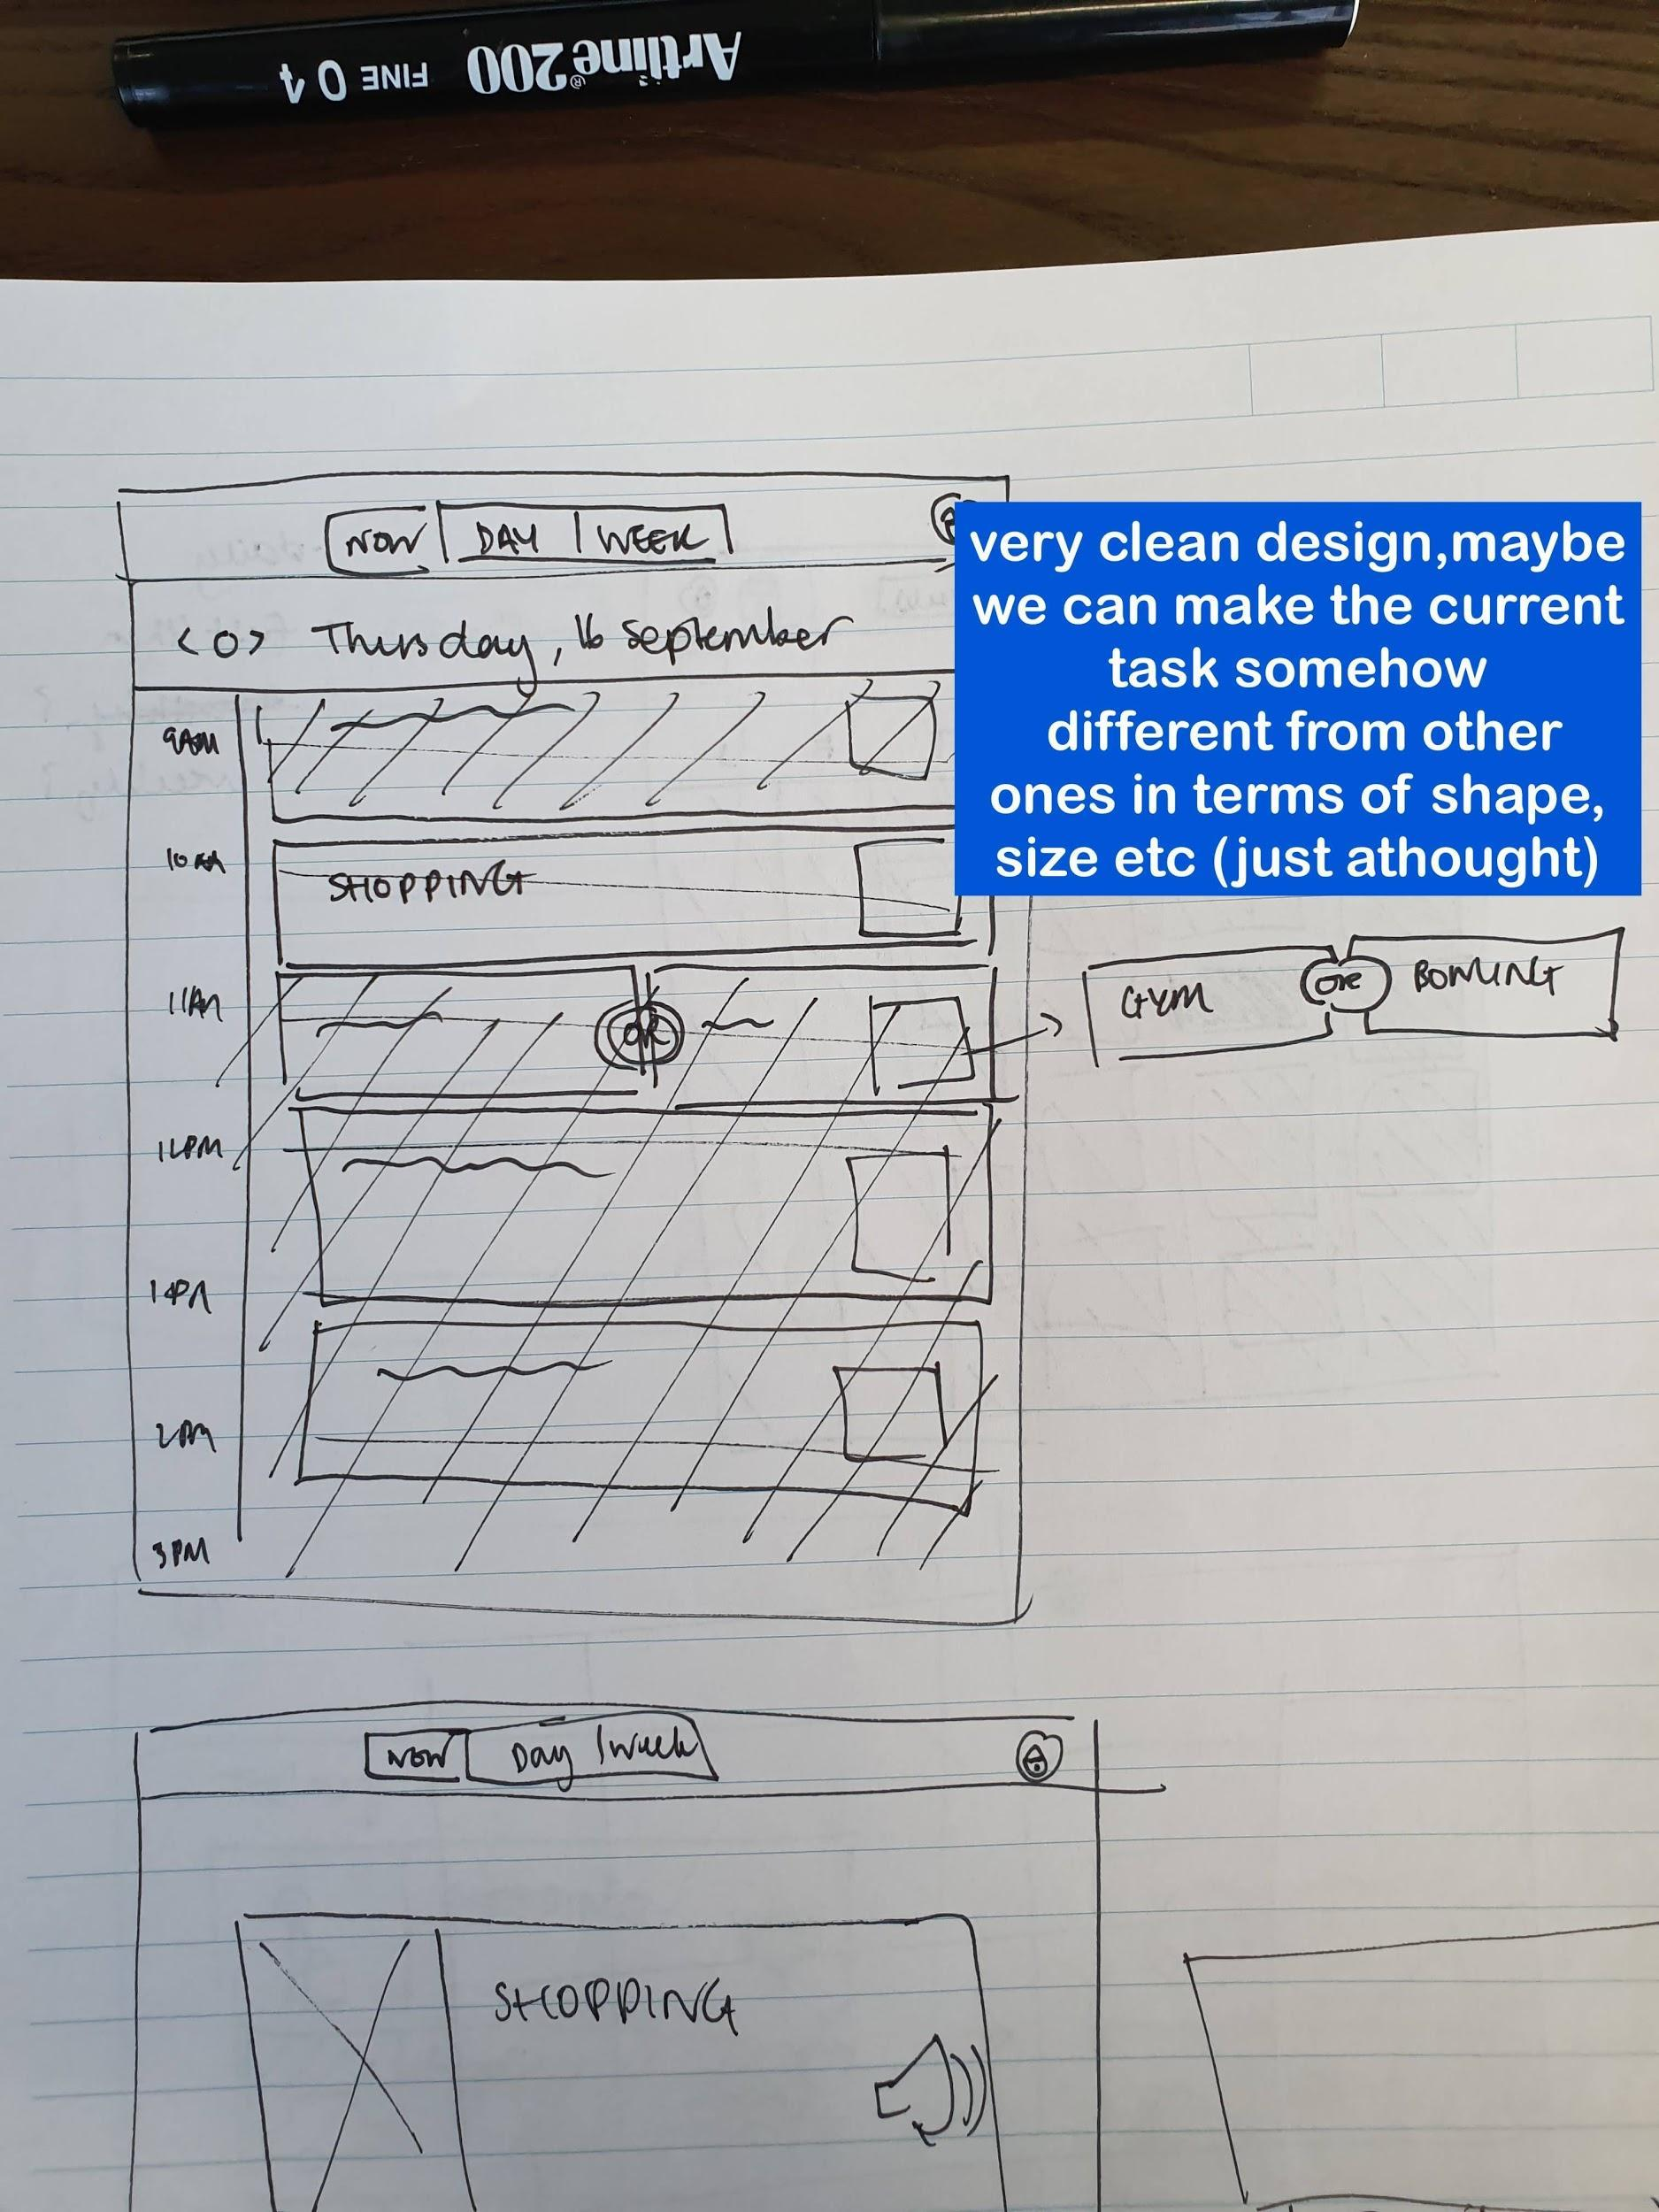 Artline® 200 FINE 0.4
NOW DAY | WEEK
<O> Thursday, 16 September
very clean design,maybe
we can make the current
task somehow
different from other
ones in terms of shape,
size etc (just athought)
9AM
10AM
SHOPPING
11AM
OR
GYM OR BOWLING
12PM
1PM
2PM
3PM
NOW Day | Week
SHOPPING